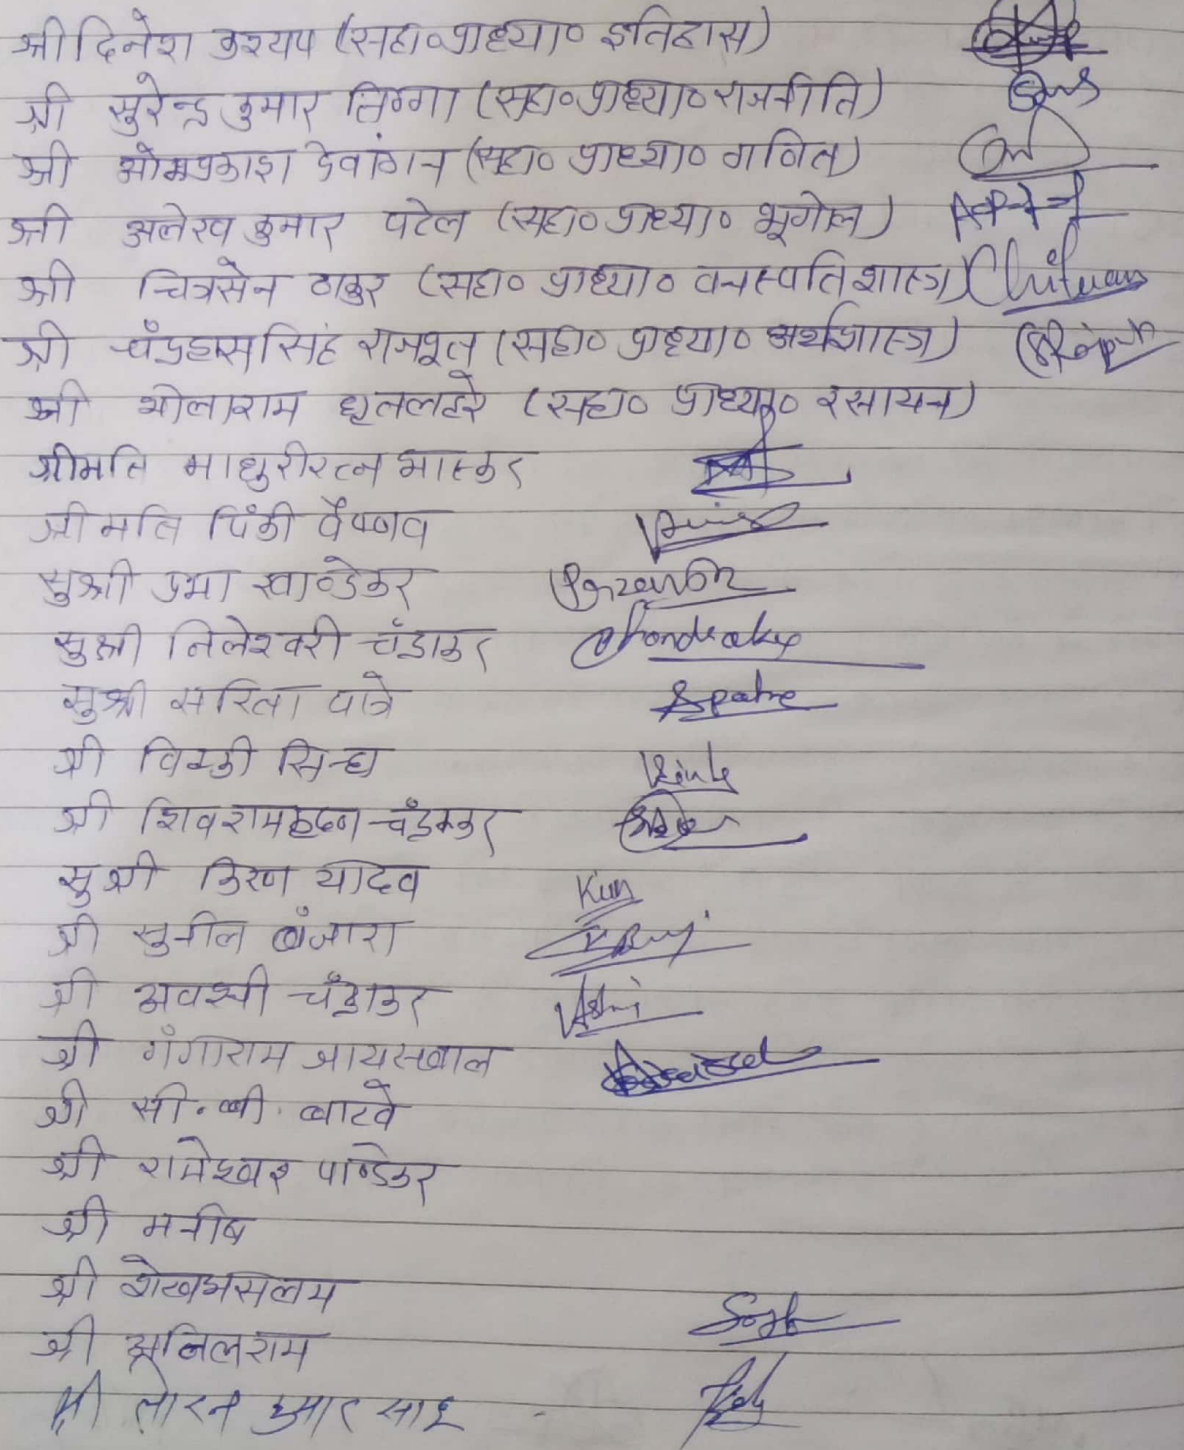 श्री दिनेश कश्यप (सहा० प्राध्या० इतिहास)
श्री सुरेन्द्र कुमार तिग्गा (सहा० प्राध्या० राजनीति)
श्री ओमप्रकाश देवांगन (सहा० प्राध्या० गणित)
श्री अलेख कुमार पटेल (सहा० प्राध्या० भूगोल)
श्री चित्रसेन ठाकुर (सहा० प्राध्या० वनस्पति शास्त्र)
श्री चंद्रहास सिंह राजपूत (सहा० प्राध्या० अर्थशास्त्र)
श्री भोलाराम धृतलहरे (सहा० प्राध्या० रसायन)
श्रीमति माधुरीरत्न भास्कर
श्रीमति पिंकी वैष्णव
सुश्री प्रभा खाण्डेकर
सुश्री निलेश्वरी चंद्राकर Chandrakar
सुश्री सरिता पात्रे Spatre
श्री विक्की सिन्हा
श्री शिवराम चंद्राकर
सुश्री किरण यादव
श्री सुनील बंजारा
श्री अवश्थी चंद्राकर
श्री गंगाराम जायसवाल
श्री सी. बी. बारवे
श्री रामेश्वर पाण्डेकर
श्री मनीष
श्री शेखअसलम
श्री अनिलराम
श्री तोरन कुमार साहू